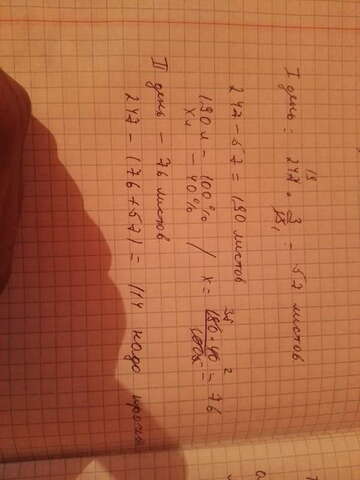 I день: 247 · 3/13 = 57 листов
247 - 57 = 190 листов
190 л - 100%
х л - 40% / x = 190·40/100 = 76
II день - 76 листов
247 - (76+57) = 114 надо